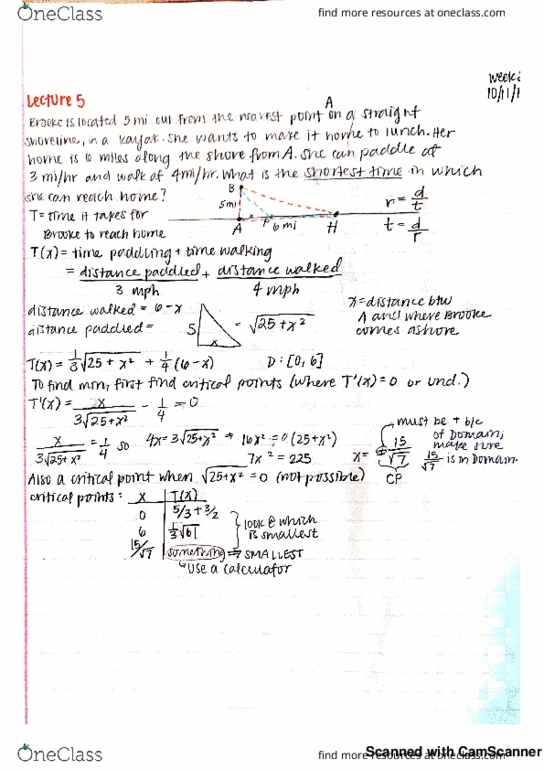 OneClass
find more resources at oneclass.com
week:
10/11/1
Lecture 5
A
Brooke is located 5 mi out from the nearest point on a straight
shoreline, in a kayak. She wants to make it home to lunch. Her
home is 6 miles along the shore from A. She can paddle at
3 mi/hr and walk at 4mi/hr. What is the shortest time in which
she can reach home?
B
5mi
A x P 6 mi H
r = d/t
t = d/r
T = time it takes for
Brooke to reach home
T(x) = time paddling + time walking
= distance paddled + distance walked
3 mph 4 mph
distance walked = 6-x
distance paddled =
5
x
= √25+x²
x = distance btw
A and where Brooke
comes ashore
T(x) = 1/3 √25 + x² + 1/4 (6-x) D: [0, 6]
To find min, first find critical points (where T'(x) = 0 or und.)
T'(x) = x / 3√25+x² - 1/4 = 0
x / 3√25+x² = 1/4 so 4x = 3√25+x² ⇒ 16x² = 9(25+x²)
7x² = 225
x = ⊕ 15/√7
CP
must be + b/c
of Domain;
make sure
15/√7 is in Domain.
Also a critical point when √25+x² = 0 (not possible)
critical points: x T(x)
0 5/3 + 3/2
6 1/3 √61
15/√7 something ⇒ SMALLEST
look @ which
is smallest
↳ Use a calculator
OneClass
find more resources at oneclass.com
Scanned with CamScanner